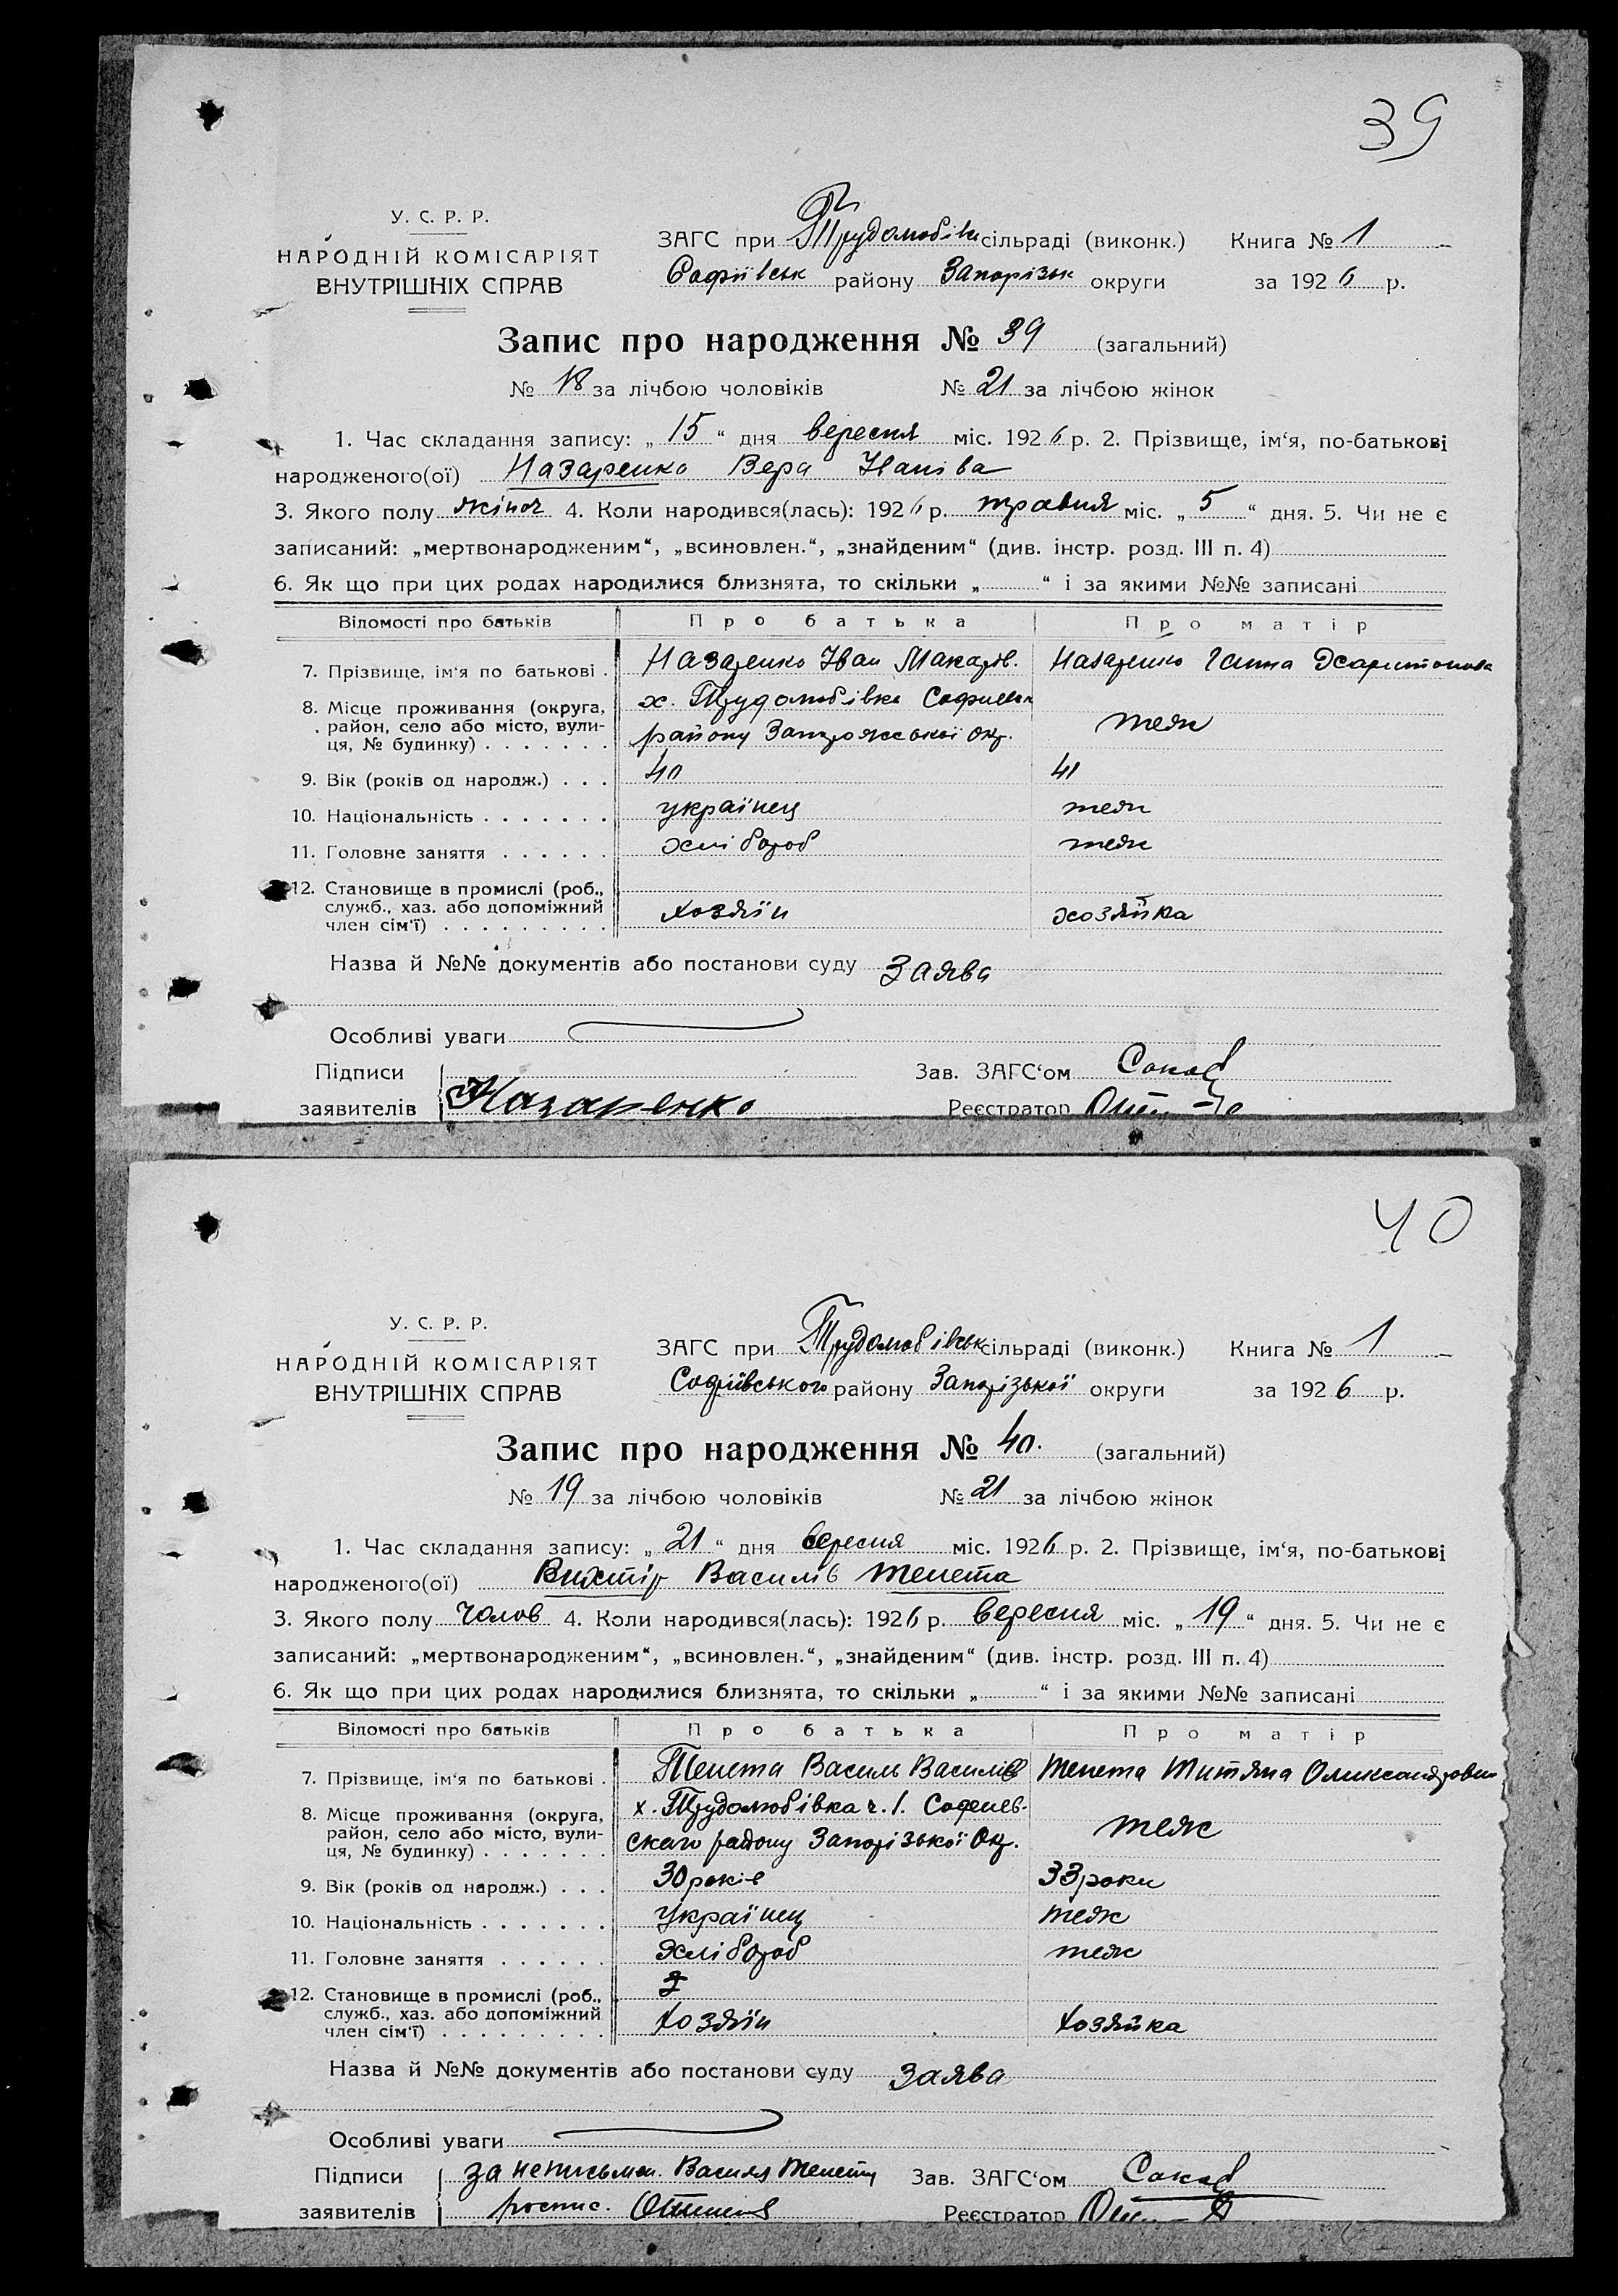 39
У. С. Р. Р.
НАРОДНІЙ КОМІСАРІЯТ
ВНУТРІШНІХ СПРАВ
ЗАГС при Трудолюбівск сільраді (виконк.) Книга № 1
Софіївськ району Запорізьк округи за 1926 р.
Запис про народження № 39 (загальний)
№ 18 за лічбою чоловіків № 21 за лічбою жінок
1. Час складання запису: „ 15 “ дня вересня міс. 1926 р. 2. Прізвище, ім‘я, по-батькові
народженого(ої) Назаренко Вера Іванівa
3. Якого полу жіноч 4. Коли народився(лась): 1926 р. травня міс. „ 5 “ дня. 5. Чи не є
записаний: „мертвонародженим“, „всиновлен.“, „знайденим“ (див. інстр. розд. III п. 4)
6. Як що при цих родах народилися близнята, то скільки „ “ і за якими №№ записані
Відомості про батьків Про батька Про матір
7. Прізвище, ім‘я по батькові . Назаренко Іван Макарів. Назаренко Ганна Харитонова
8. Місце проживання (округа, х. Трудолюбівка Софиевск
район, село або місто, вули- району Запорожської окр. теж
ця, № будинку) . . . . . . .
9. Вік (років од народж.) . . . 40 41
10. Національність . . . . . . . українец теж
11. Головне заняття . . . . . . хлібороб теж
12. Становище в промислі (роб.,
служб., хаз. або допоміжний хозяїн хозяйка
член сім‘ї) . . . . . . . . .
Назва й №№ документів або постанови суду Заява
Особливі уваги
Підписи Зав. ЗАГС‘ом
заявителів Назаренко Реєстратор
40
У. С. Р. Р.
НАРОДНІЙ КОМІСАРІЯТ
ВНУТРІШНІХ СПРАВ
ЗАГС при Трудолюбівськ сільраді (виконк.) Книга № 1
Софіївського району Запорізької округи за 1926 р.
Запис про народження № 40. (загальний)
№ 19 за лічбою чоловіків № 21 за лічбою жінок
1. Час складання запису: „ 21 “ дня вересня міс. 1926 р. 2. Прізвище, ім‘я, по-батькові
народженого(ої) Вихтір Василів Тенета
3. Якого полу чолов 4. Коли народився(лась): 1926 р. вересня міс. „ 19 “ дня. 5. Чи не є
записаний: „мертвонародженим“, „всиновлен.“, „знайденим“ (див. інстр. розд. III п. 4)
6. Як що при цих родах народилися близнята, то скільки „ “ і за якими №№ записані
Відомості про батьків Про батька Про матір
7. Прізвище, ім‘я по батькові . Тенета Василь Василів Тенета Титяна Олександровн
8. Місце проживання (округа, х. Трудолюбівка ч. 1. Софиев-
район, село або місто, вули- скаго району Запорізької Окр. теж
ця, № будинку) . . . . . . .
9. Вік (років од народж.) . . . 30 років 33 роки
10. Національність . . . . . . . українец теж
11. Головне заняття . . . . . . хлібороб теж
12. Становище в промислі (роб.,
служб., хаз. або допоміжний хозяїн хозяйка
член сім‘ї) . . . . . . . . .
Назва й №№ документів або постанови суду Заява
Особливі уваги
Підписи за неписьмен. Василя Тенету Зав. ЗАГС‘ом
заявителів роспис. Реєстратор